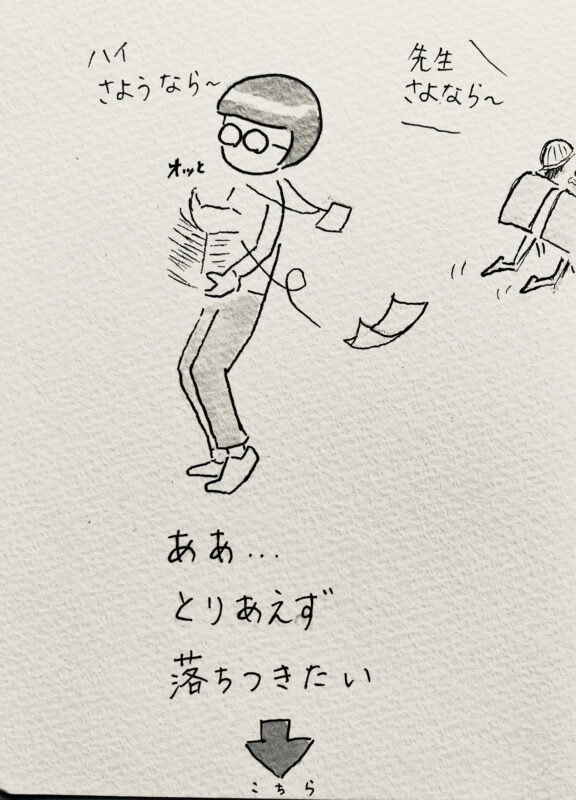 先生
さよなら〜
ハイ
さようなら〜
オッと
ああ...
とりあえず
落ちつきたい
こちら